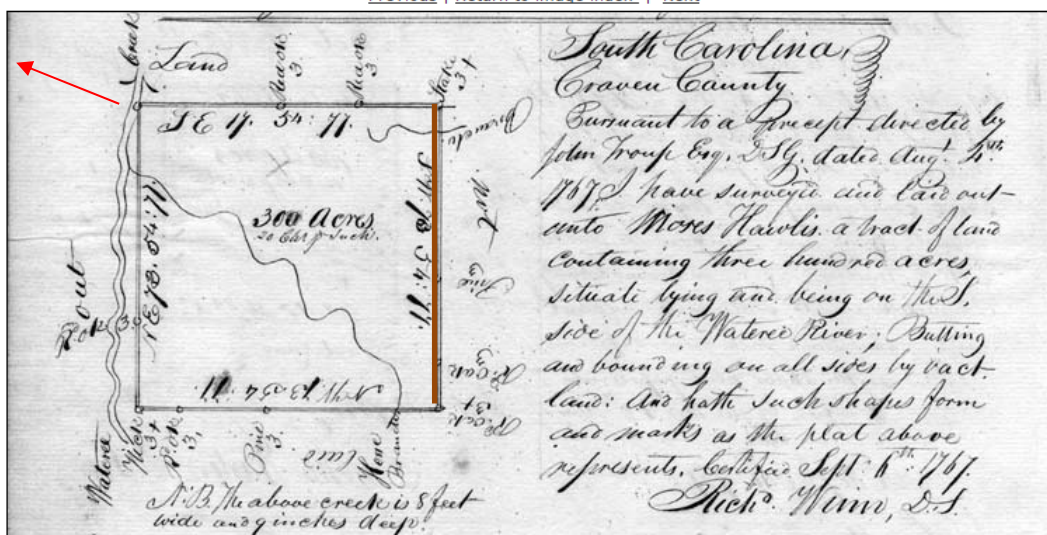 Previous | Return to Image Index | Next
Creek
Land
3
3
Stake
3+
S E 17. 54:77.
300 Acres
20 Chs p Inch.
54:77.
54:77.
Out
3
Pine
3
R. Oak
3+
Wateree
Hick
3+
3
Pine
3
Land
Branch
N.B. The above creek is 8 feet
wide and 9 inches deep.
South Carolina,
Craven County
Pursuant to a Precept directed by
John Troup Esq. D.S.G. dated Augt. 4th.
1767. I have surveyed and laid out
unto Moses Hawlis a tract of land
containing three hundred acres,
situate lying and being on the S.
side of the Wateree River; Butting
and bounding on all sides by vact.
land: And hath such shapes form
and marks as the plat above
represents. Certified Sept: 6th. 1767.
Richd. Winn, D.S.